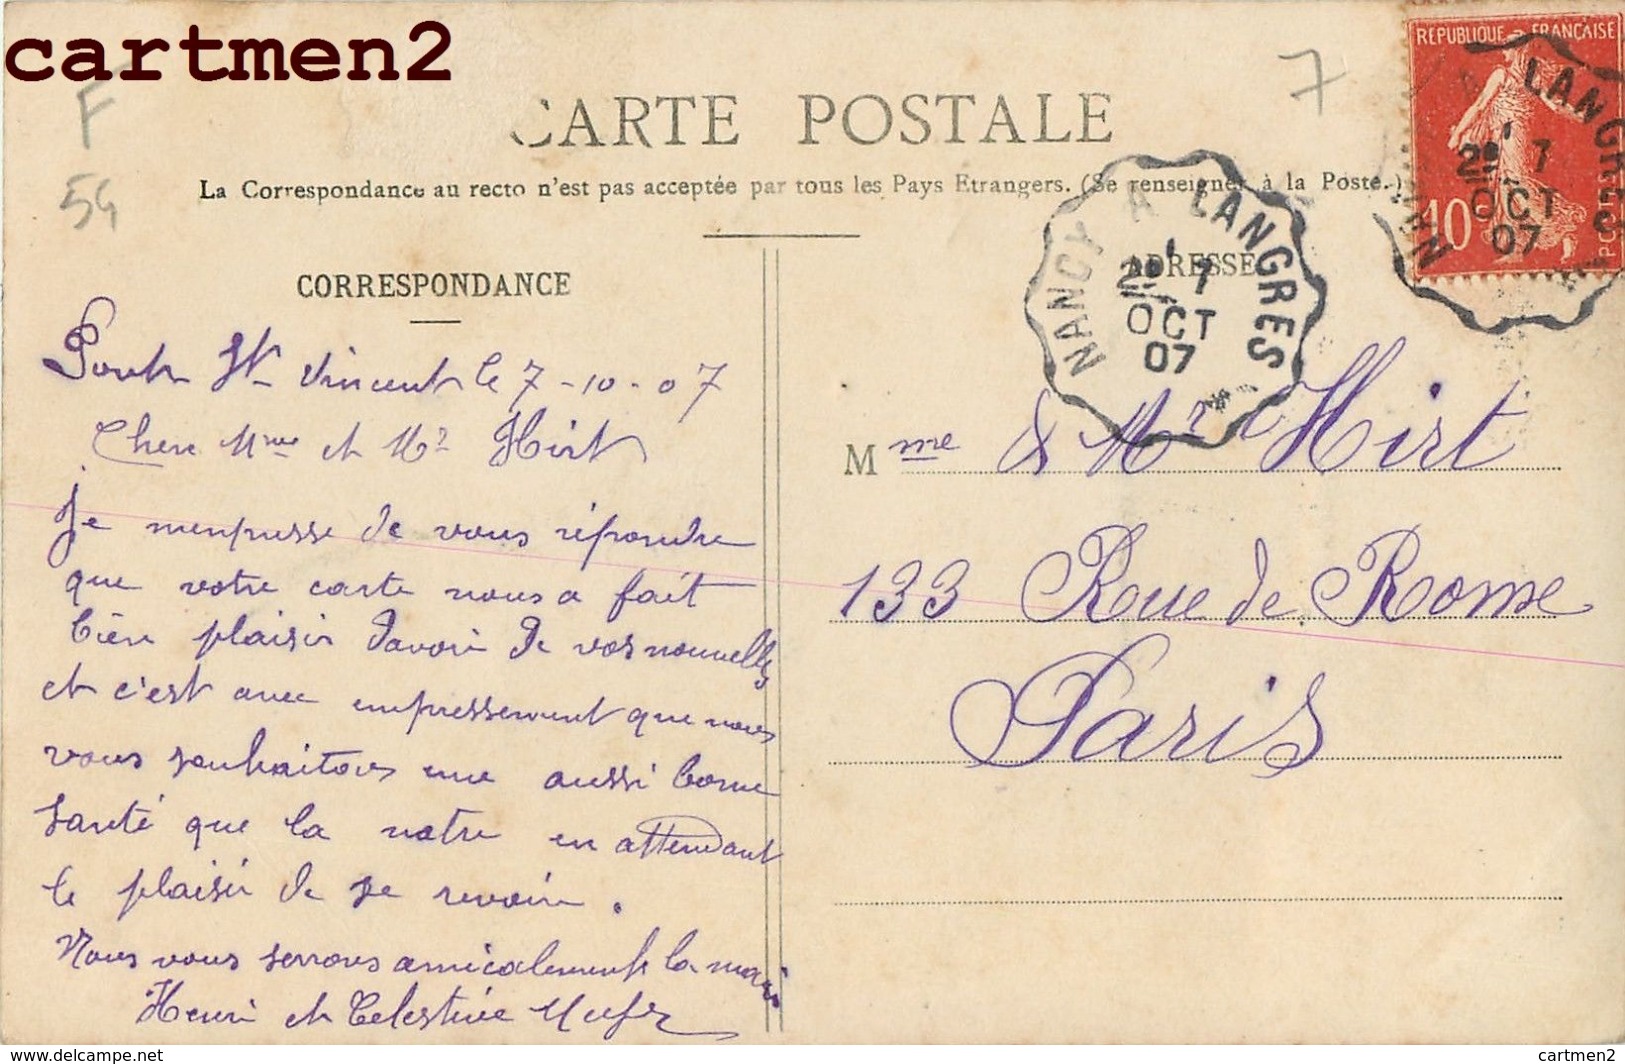 cartmen2
F
54
7
CARTE POSTALE
La Correspondance au recto n'est pas acceptée par tous les Pays Etrangers. (Se renseigner à la Poste.)
REPUBLIQUE FRANÇAISE
10c
POSTES
LANGRES
2E 7
OCT
07
NANCY A LANGRES
2E 7
OCT
07
CORRESPONDANCE
Pont St Vincent le 7-10-07
Chere Mme et Mr Hirt
Je menpresse de vous répondre
que votre carte nous a fait
bien plaisir davoir de vos nouvelles
et c'est avec empressement que nous
vous souhaitons une aussi bonne
santé que la notre en attendant
le plaisir de se revoir.
Nous vous serrons amicalement la main
Henri et Celestine
ADRESSE
Mme & Mr Hirt
133 Rue de Rome
Paris
www.delcampe.net
cartmen2